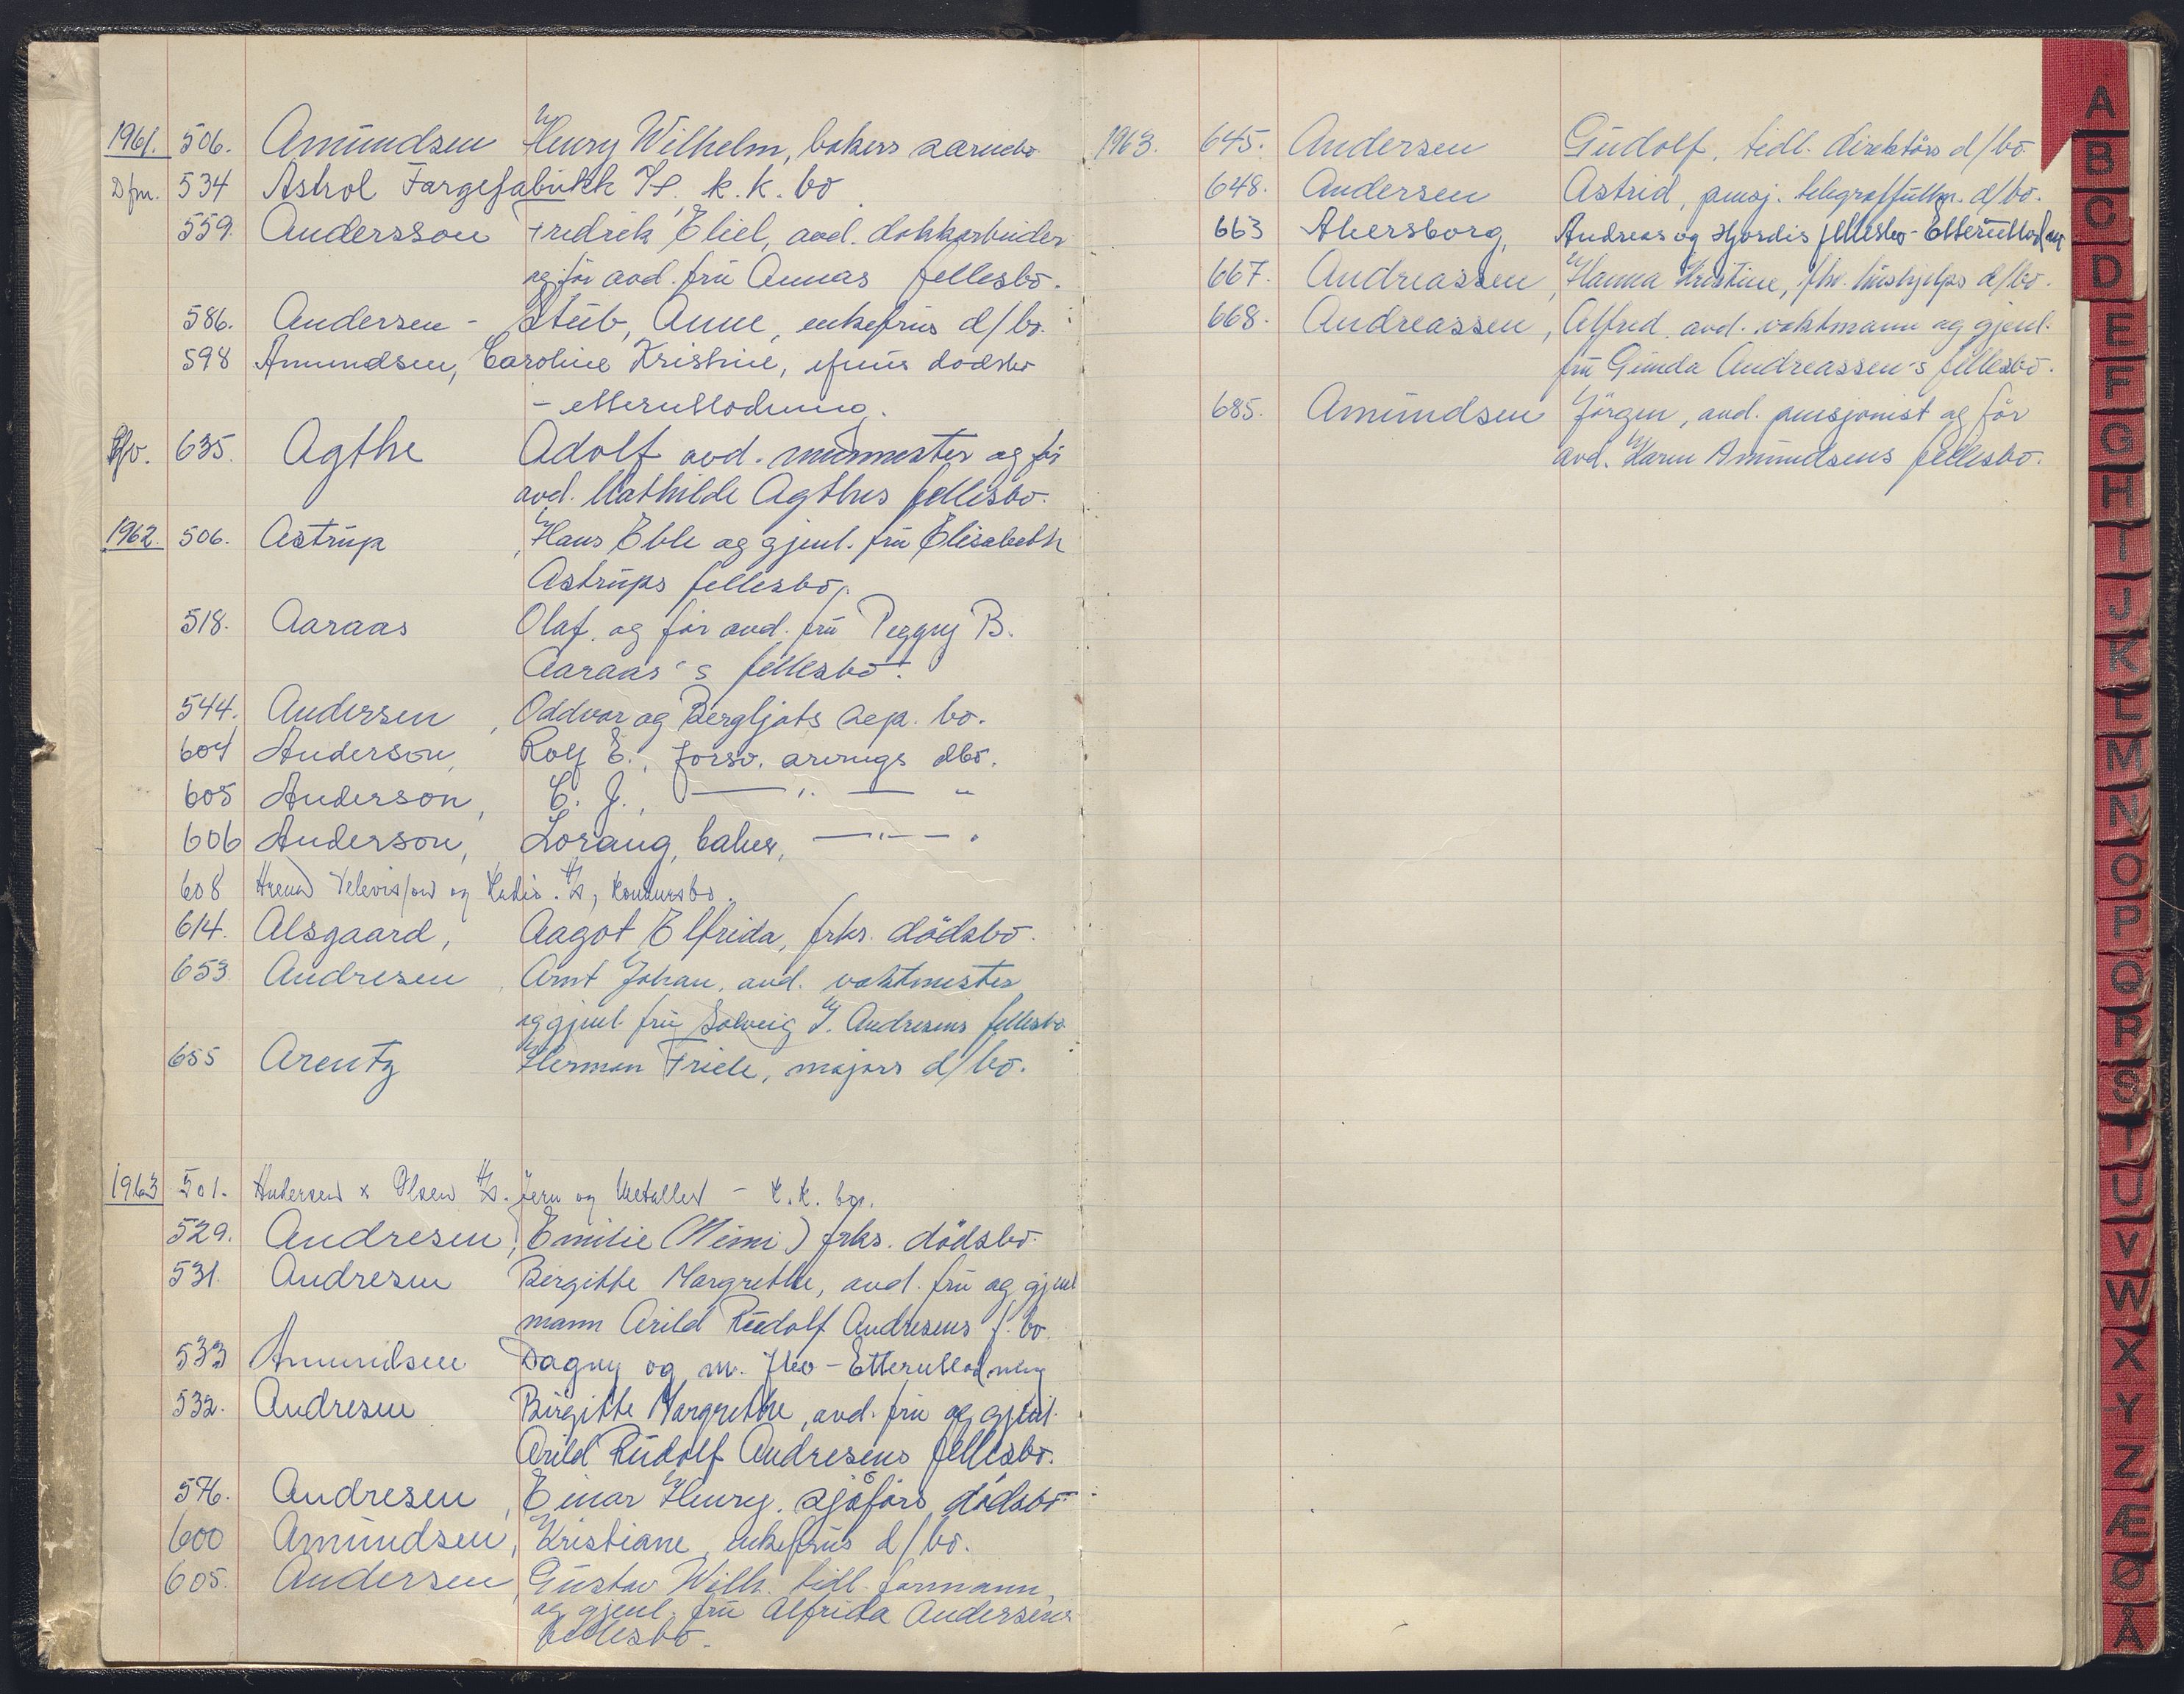 1961. 506. Amundsen Henry Wilhelm, bakers særiebo
Dfm. 534 Astrol Fargefabrikk A/S. k.k. bo
559. Andersson Fredrik Eliel, avd. dokkarbeider
og før avd. fru Annas fellesbo.
586. Andersen - Stub, Anne, enkefrus d/bo.
598 Amundsen, Caroline Kristine, efrus dødsbo
- etterutlodning.
635. Agthe Adolf avd. murmester og før
avd. Mathilde Agthes fellesbo.
1962. 506. Astrup, Hans Eble og gjenl. fru Elisabeth
Astrups fellesbo.
518. Aaraas Olaf, og før avd. fru Peggy B.
Aaraas's fellesbo.
544. Andersen, Oddvar og Bergljots sep. bo.
604 Anderson, Rolf E., forsv. arvings dbo.
605 Anderson, C. J., — " — "
606 Anderson, Lorang, — " —
608 Television og Radio A/S, Konkursbo.
614. Alsgaard, Aagot Elfrida, frks. dödsbo.
653 Andresen, Arnt Johan, avd. vaktmester
og gjenl. fru Solveig J. Andresens fellesbo
655 Arentz Herman Friele, majors d/bo.
1963 501. Andersen & Olsen A/S. Jern og Metaller - k.k. bo.
529. Andresen, Emilie (Mimi) frks. dödsbo.
531. Andresen Birgitte Margrethe, avd. fru og gjenl
mann Arild Rudolf Andresens f. bo.
533 Amundsen Dagny og m. fbo - Etterutlodning
532. Andresen Birgitte Margrethe, avd. fru og gjenl.
Arild Rudolf Andresens fellesbo.
576. Andresen, Einar Henry, sjåførs dödsbo
600 Amundsen, Kristiane, enkefrus d/bo.
605. Andersen, Gustav Wilh. tidl. formann,
og gjenl. fru Alfrida Andersens
fellesbo.
1963. 645. Andersen Gudolf, tidl. direktörs d/bo.
648. Andersen Astrid, pensj. telegraffullm. d/bo.
663 Akersborg, Andreas og Hjørdis fellesbo - Etterutlodning
667. Andreassen, Hanna Kristine, fhv. hushjelps d/bo.
668. Andreassen, Alfred avd. vaktmann og gjenl.
fru Gunda Andreassen's fellesbo.
685. Amundsen Jörgen, avd. pensjonist og før
avd. Karen Amundsens fellesbo.
A
B
C
D
E
F
G
H
I
J
K
L
M
N
O
P
Q
R
S
T
U
V
W
X
Y
Z
Æ
Ø
Å